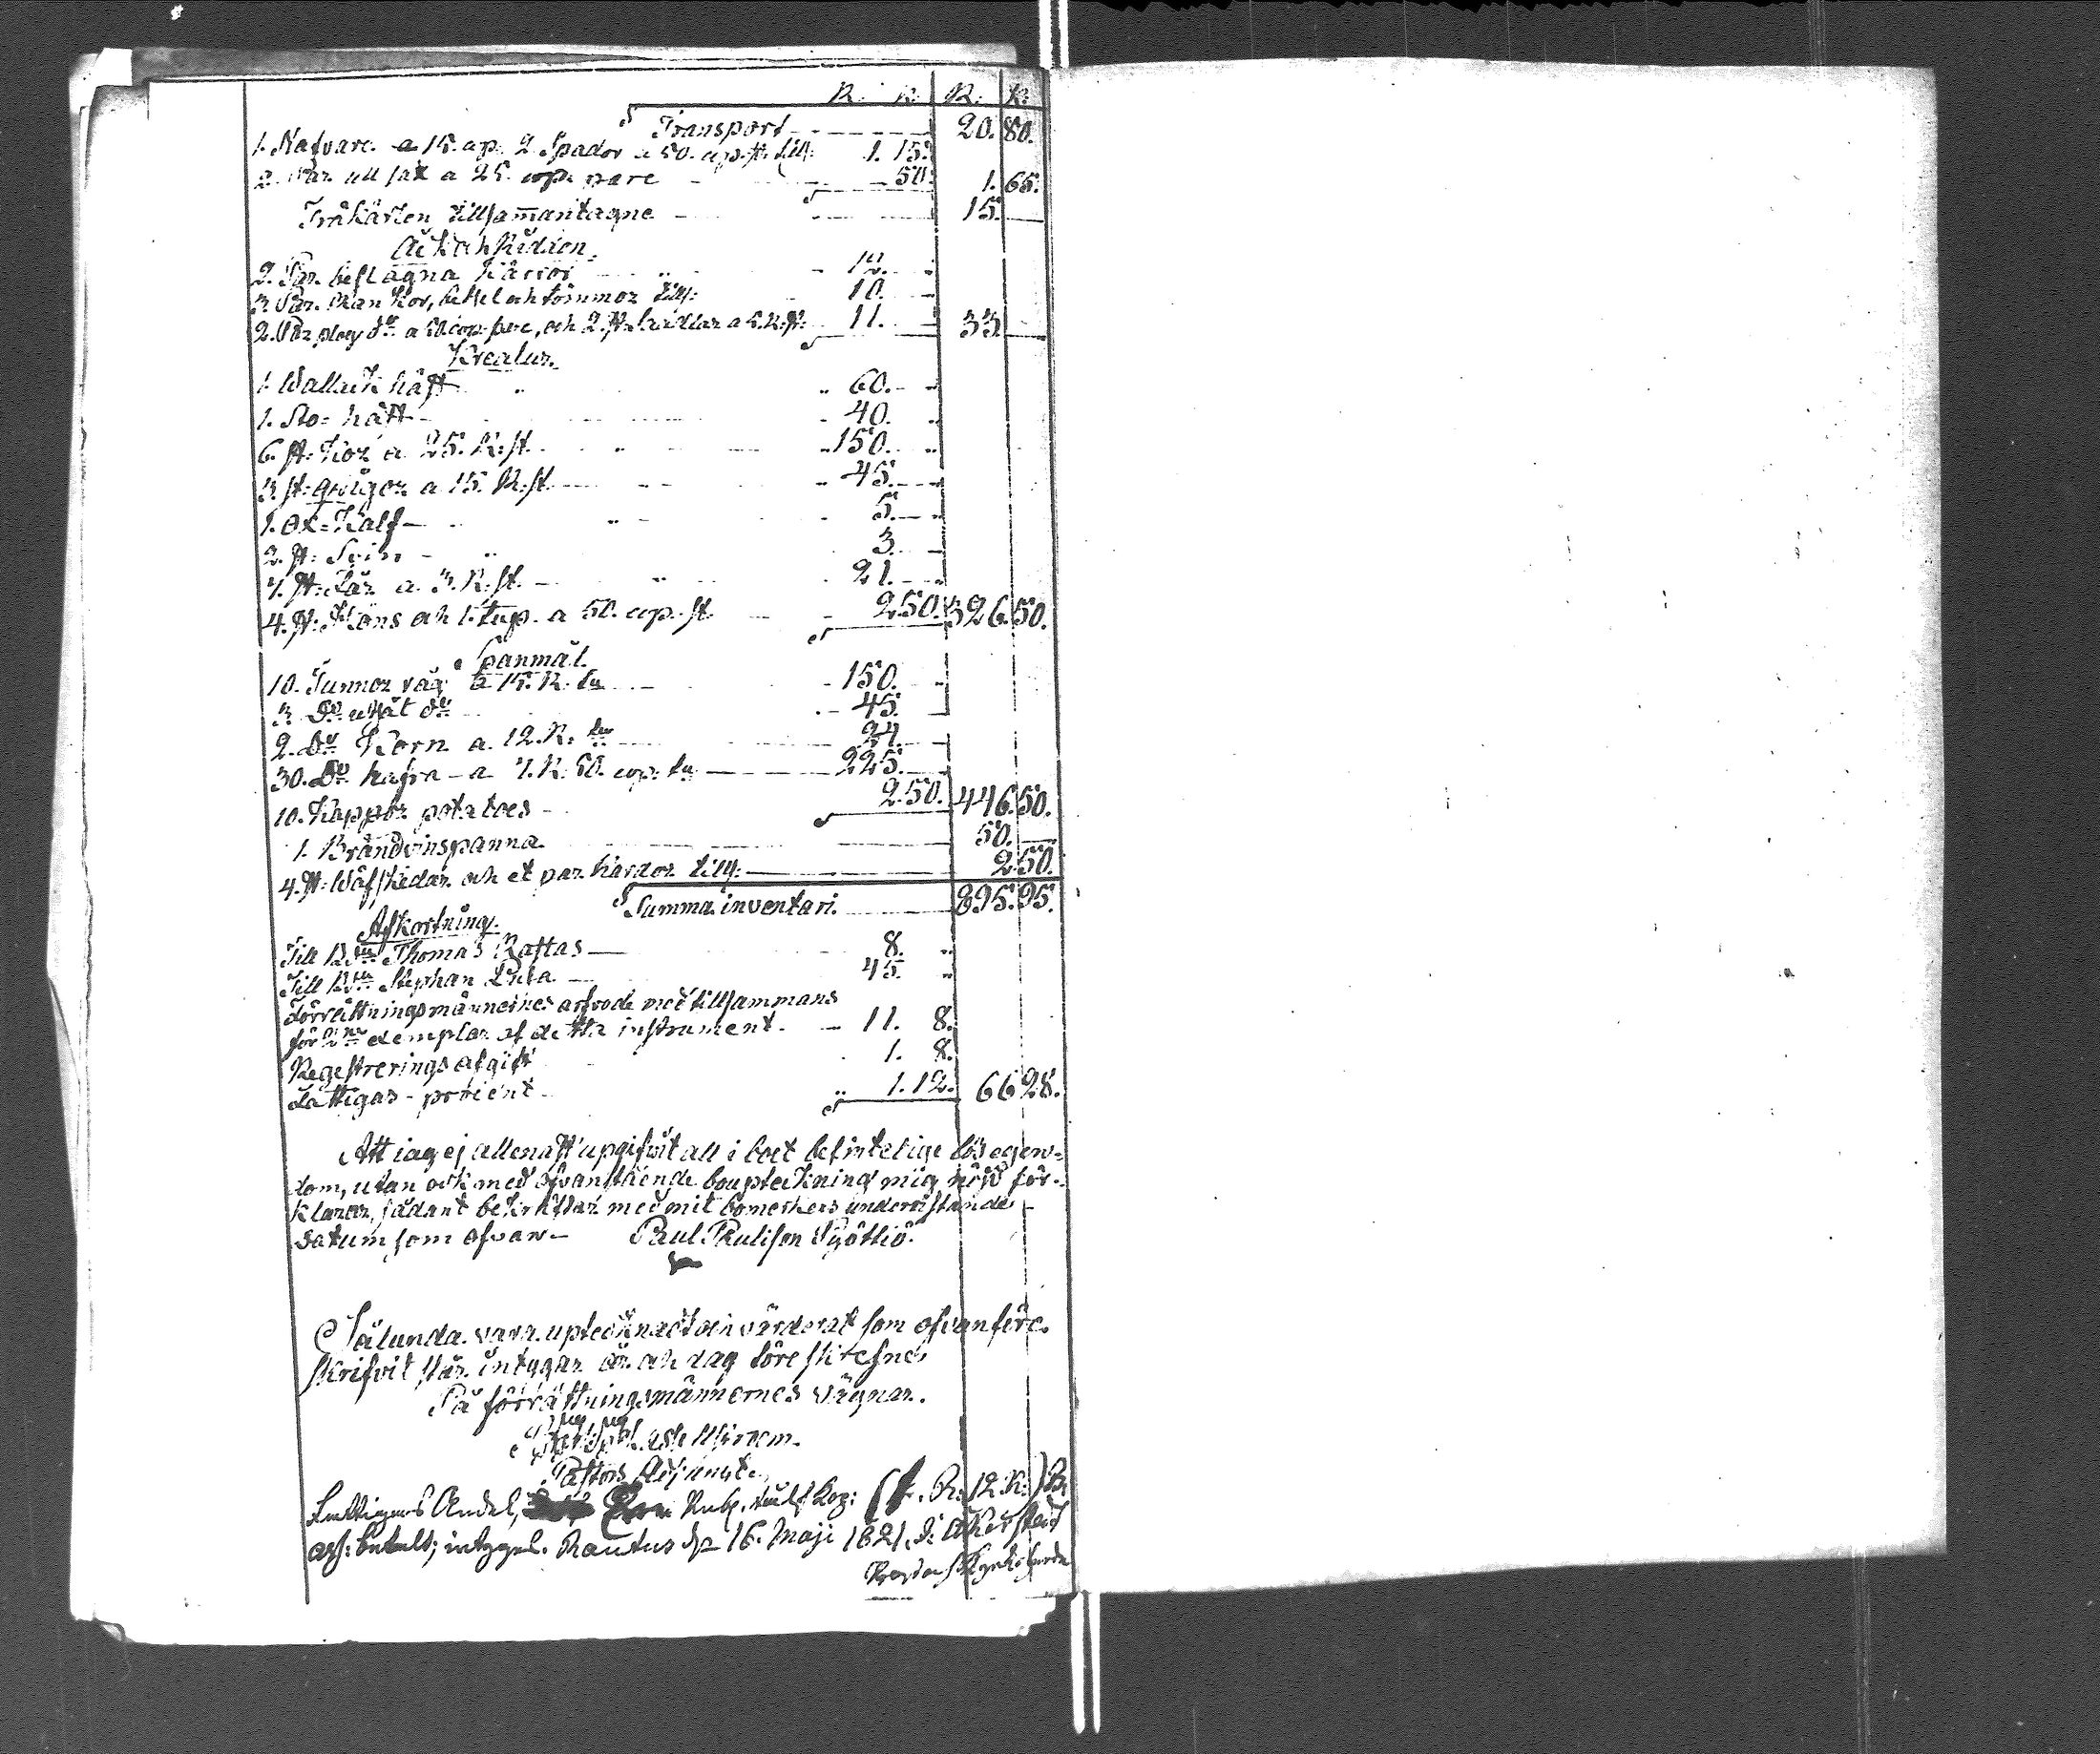 R. K. R. K.
Transport 20. 80.
1. Nafvare a 15. cop. 2 Spador a 50. cop. st: till: 1. 15.
2. Par ull sax a 25. cop. pare 50. 1. 65.
Träkärlen tillsam̄antagne 15.
Åk och Rid
2. Par beslagna kärror 12.
3. Par. Ran kor, betsel och tömmar till: 10.
2. Par plog do a 50 cop. pare, och 2. st. a 5. R. st. 11. 33.
Kreatur.
1. Wallack häst 60.
1. Sto- häst 40.
6. st: Kor a 25. R. st. 150.
3. st: qwigor a 15. R. st. 45.
1. Ox-Kalf 5.
2. st: Svin 3.
7. st: Får a 3. R. st. 21.
4. st: Höns och 1. tup. a 50. cop. st. 2.50. 326. 50.
Spanmål.
10. Tunnor råg a 15. R. tn 150.
3. Do utsåt do 45.
2. do Korn a. 12. R. tn 24.
30. Do hafra a 7. R. 50. cop. tn 225.
10. Kappor potatoes 2.50. 446. 50.
1. Brändvinspanna 50.
4. st: Wäfskedar och et par kardor till: 2. 50.
Summa inventari. 895. 95.
Afkortning.
Till Bdn Thomas Rastas 8.
Till Bdn Stephan 45.
Förrättningsmännernes arfvode med tillsammans
för 2ne exemplar af detta instrument. 11. 8.
Regestrerings afgift 1. 8.
Fattigas- procent 1. 12. 66 28.
Att iag ej allenast upgifvit all i boet befintelige lös egen-
dom, utan ock med ofvanstående bouptekning mig nögd för-
klarar, sådant bekräftar med mit bomerkes underristande
datum som ofvan- Paul Paulison Pyöttiö.
Sålunda vara uptecknadt och värderat som ofvanföre
skrifvit står. intygar år och dag föreskrefne
På förrättningsmännernes vägnar.
Pastors Adjunct.
Fattigas Andel, Rub. tolf kop: (1. R: 12. K:) B.
as: betalt; intygas. Rautus d. 16. Maji 1821.